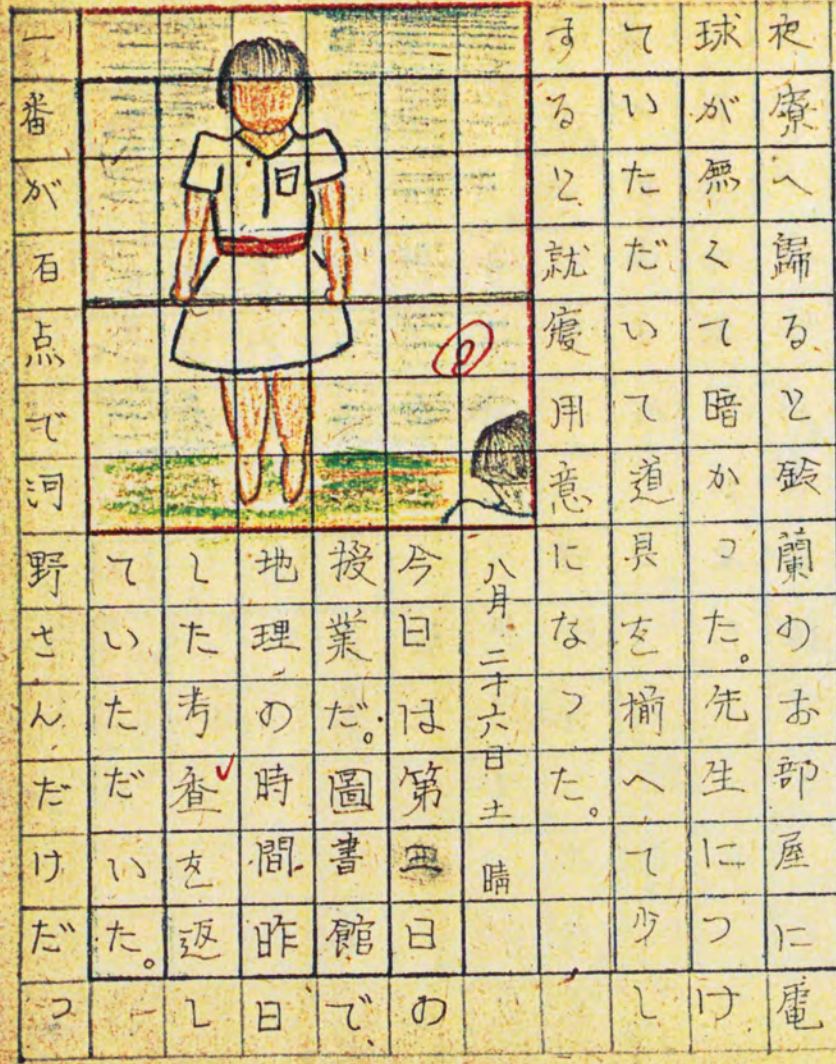 夜寮へ歸ると鈴蘭のお部屋に電
球が無くて暗かつた。先生につけ
ていただいて道具を揃へて少し
すると就寝用意になつた。
八月 二十六日 土 晴
今日は第日の
授業だ。圖書館で、
地理の時間昨日
した考査を返し
ていただいた。
一番が百点で河野さんだけだつ